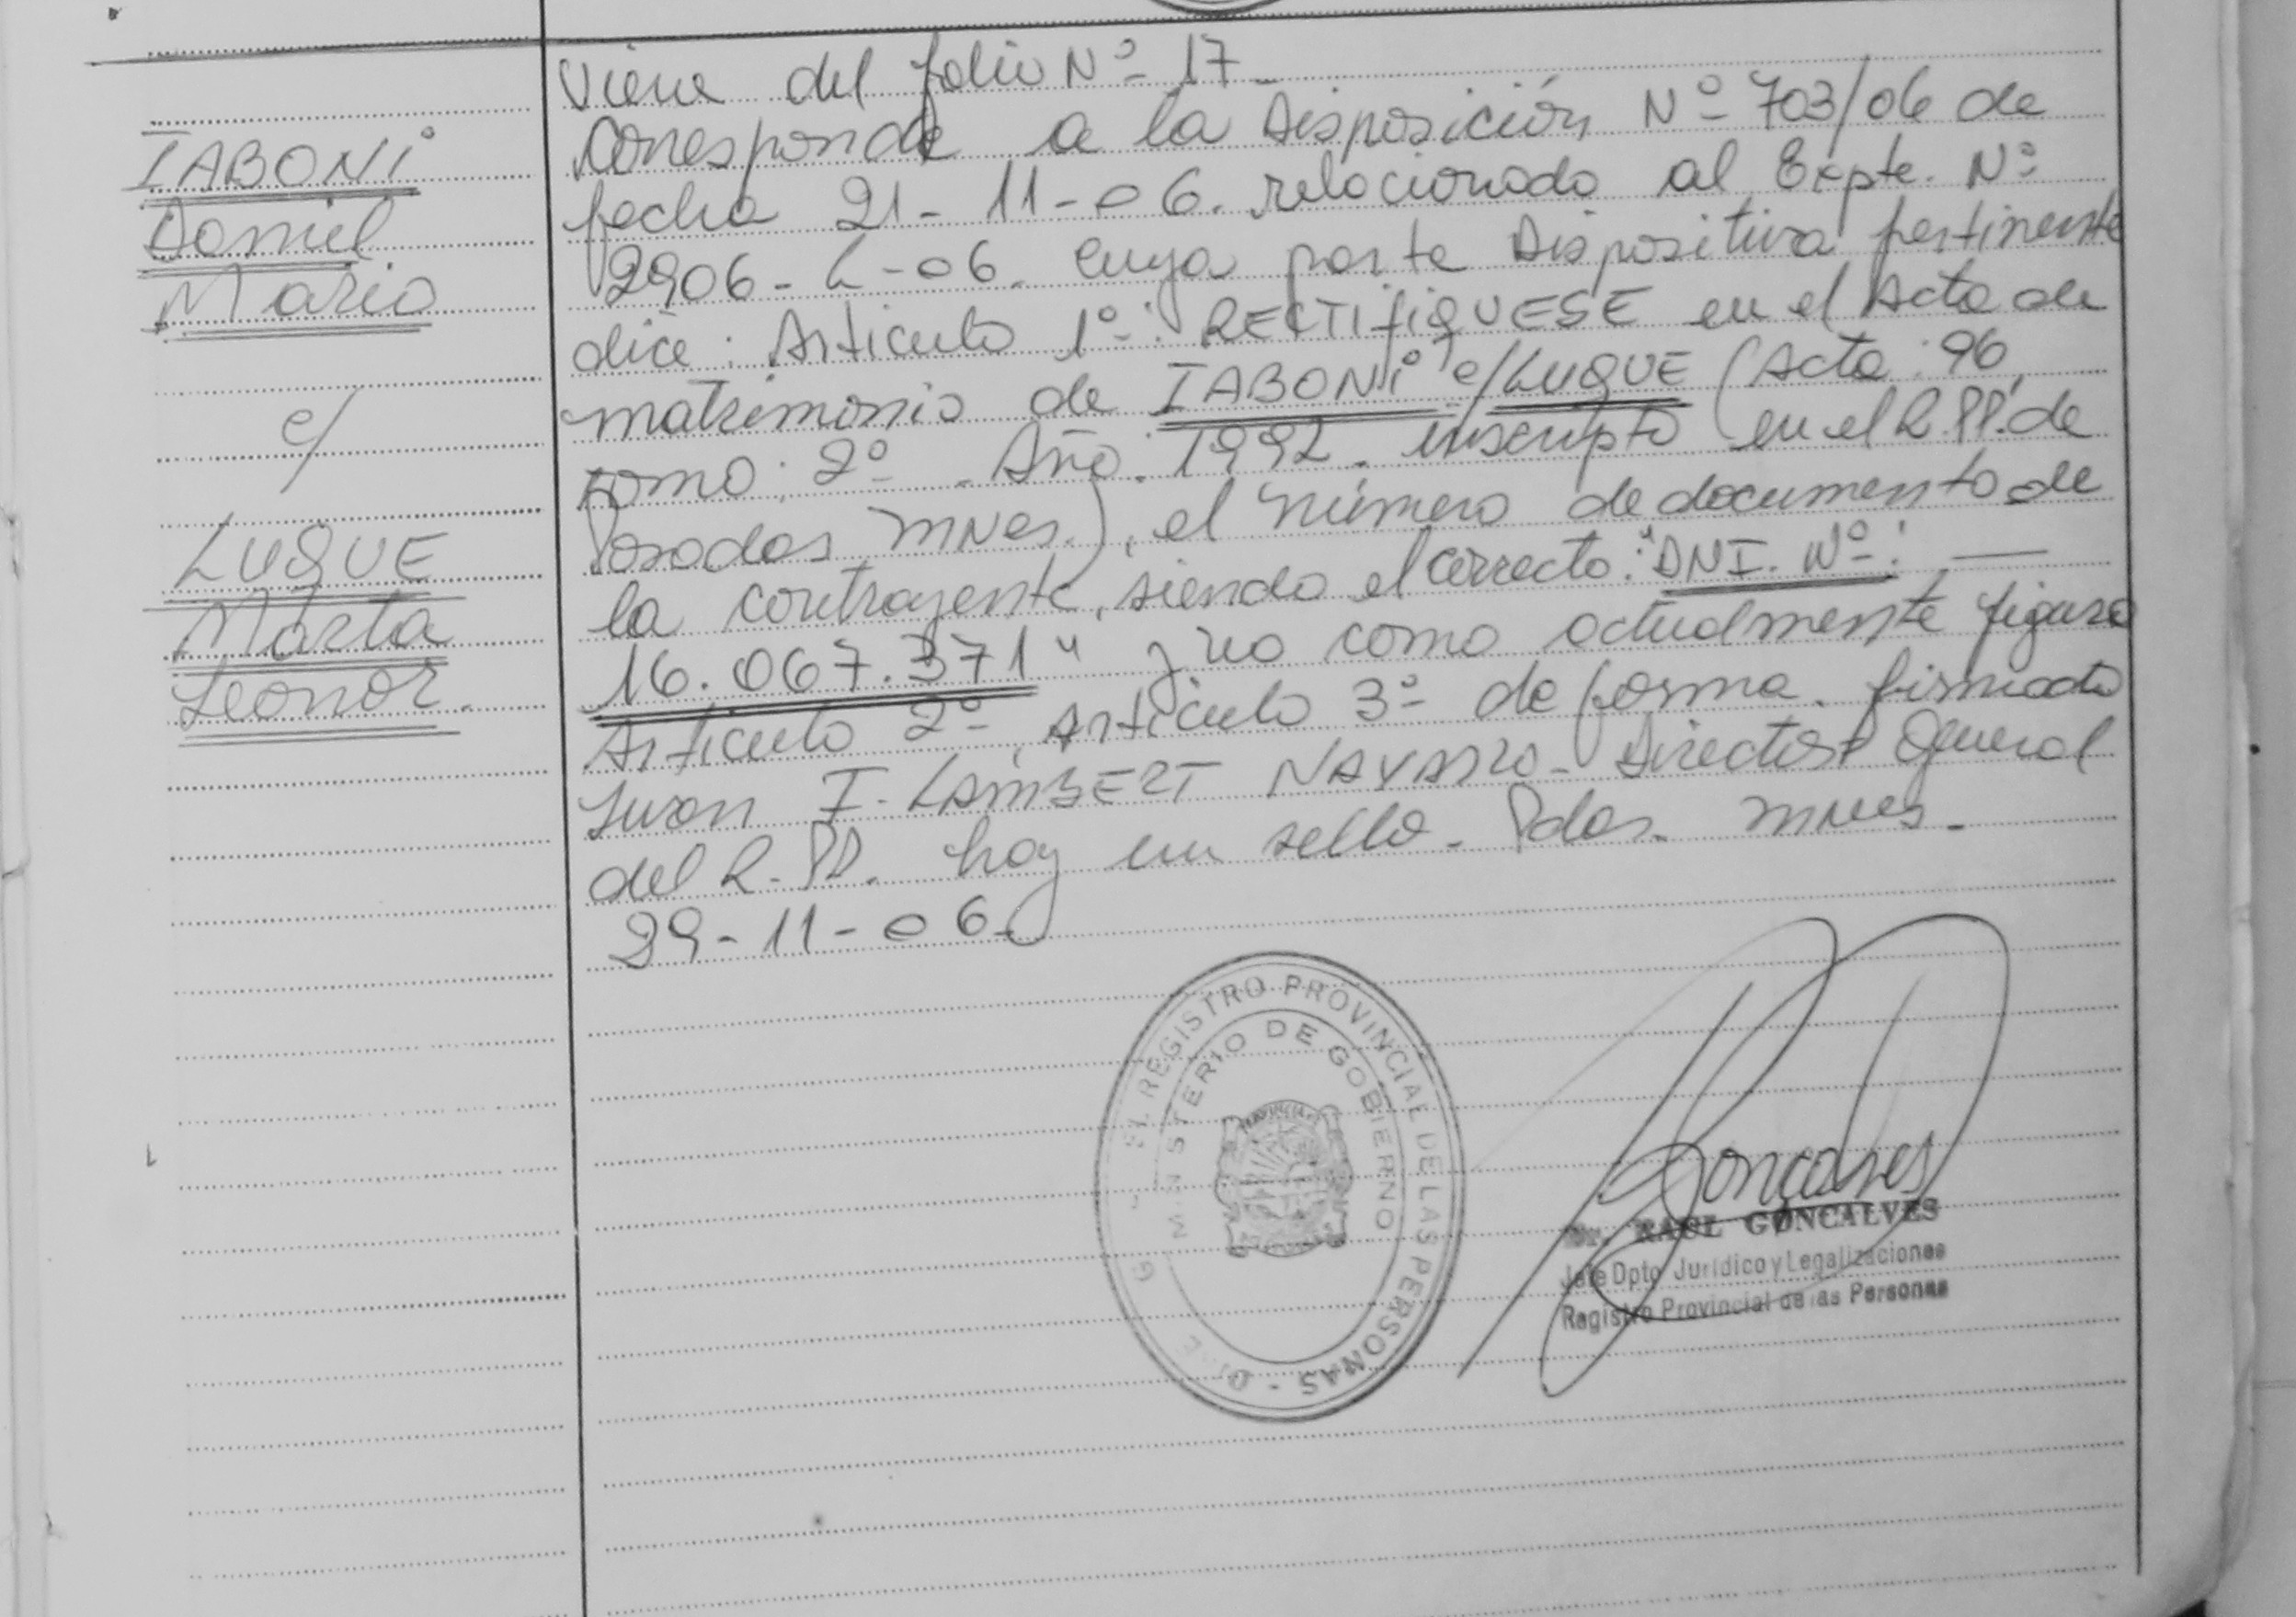 Viene del folio Nº 17-
IABONI
Daniel
Mario
c/
LUQUE
Marta
Leonor.
Corresponde a la Disposición Nº 703/06 de
fecha 21-11-06. relacionado al Expte. Nº
2906-L-06. cuya parte Dispositiva pertinente
dice: Articulo 1º: RECTIfiQUESE en el Acta de
matrimonio de IABONI c/LUQUE (Acta: 96,
tomo: 2º. Año: 1992. inscripto en el R.PP. de
Posadas Mnes.), el número de documento de
la contrayente, siendo el correcto: "DNI. Nº: —
16.067.371" y no como actualmente figura
Articulo 2º, Articulo 3º de forma. firmado
Juan I. LAMBERT NAVARRO- Director General
del R.PP. hay un sello. Pdas. Mnes.
29-11-06.
REGISTRO PROVINCIAL DE LAS PERSONAS -
MINISTERIO DE GOBIERNO
Gonçalves
Dr. RAUL GONCALVES
Jefe Dpto Jurídico y Legalizaciones
Registro Provincial de las Personas